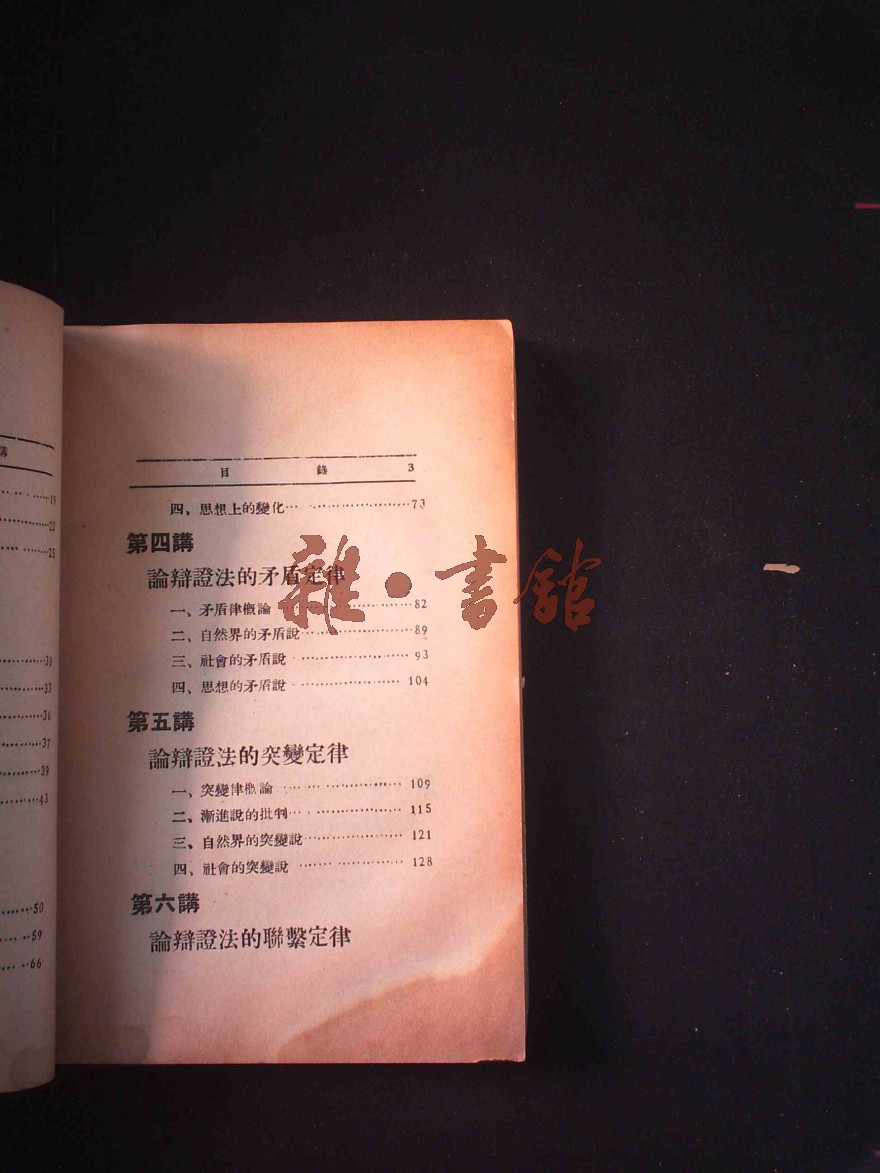 講
19
22
25
30
33
36
37
39
43
50
59
66
目 錄 3
四、思想上的變化 73
第四講
論辯證法的矛盾定律
一、矛盾律概論 82
二、自然界的矛盾說 89
三、社會的矛盾說 93
四、思想的矛盾說 104
第五講
論辯證法的突變定律
一、突變律概論 109
二、漸進說的批判 115
三、自然界的突變說 121
四、社會的突變說 128
第六講
論辯證法的聯繫定律
雜·書館